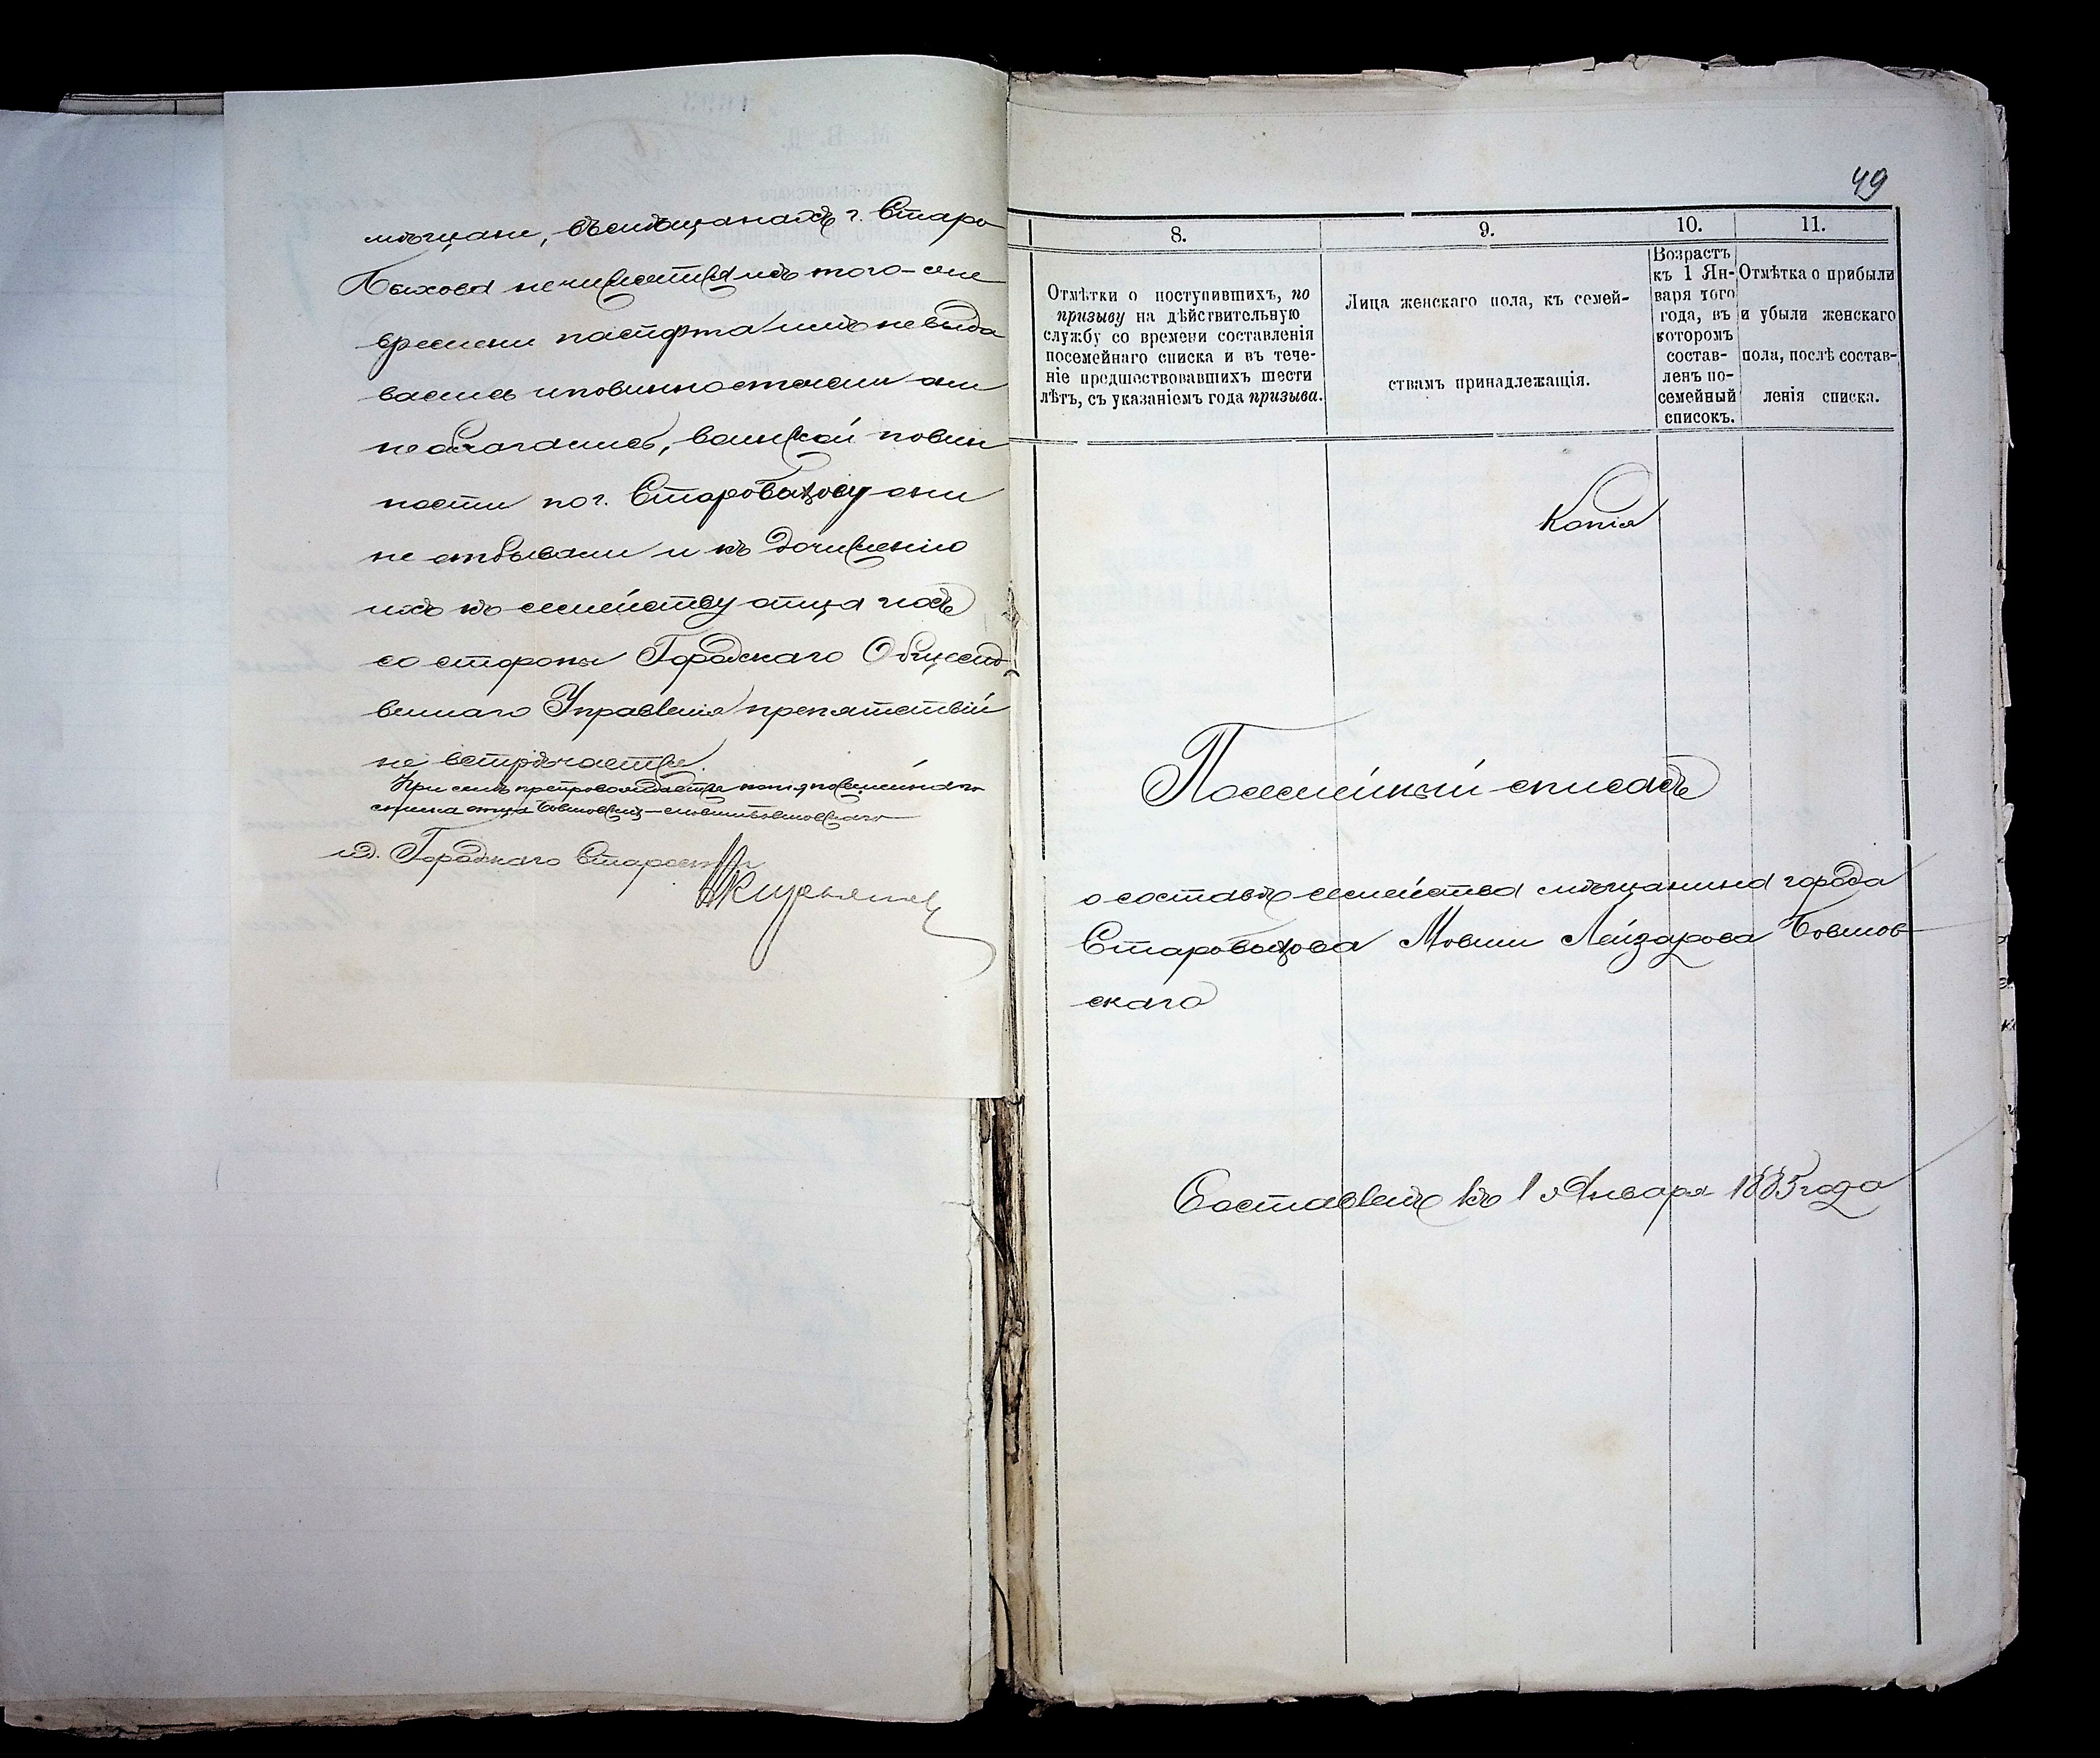 мѣщане, въ мѣщанахъ г. Старо-
Быхова не числятся изъ того-же
времени паспорта имъ не выда
вались и повинностями они
не облагались, воинской повин
ности по г. Старобыхову они
не отбывали и къ дочисленію
ихъ къ семейству отца ихъ
со стороны Городскаго Общест-
веннаго Управленія препятствій
не встрѣчается.
При семъ препровождается копія посемейнаго
списка отца Бовшовскихъ — Мовши Бовшовскаго
и.д. Городскаго Старосты
49
8.
9.
10.
11.
Отмѣтки о поступившихъ, по
призыву на дѣйствительную
службу со времени составленія
посемейнаго списка и въ тече-
ніе предшествовавшихъ шести
лѣтъ, съ указаніемъ года призыва.
Лица женскаго пола, къ семей-
ствамъ принадлежащія.
Возрастъ
къ 1 Ян-
варя того
года, въ
которомъ
состав-
ленъ по-
семейный
списокъ.
Отмѣтка о прибыли
и убыли женскаго
пола, послѣ состав-
ленія списка.
Копія
Посемейный списокъ
о составѣ семейства мѣщанина города
Старобыхова Мовши Лейзарова Бовшов-
скаго
Составленъ къ 1 Января 1885 года